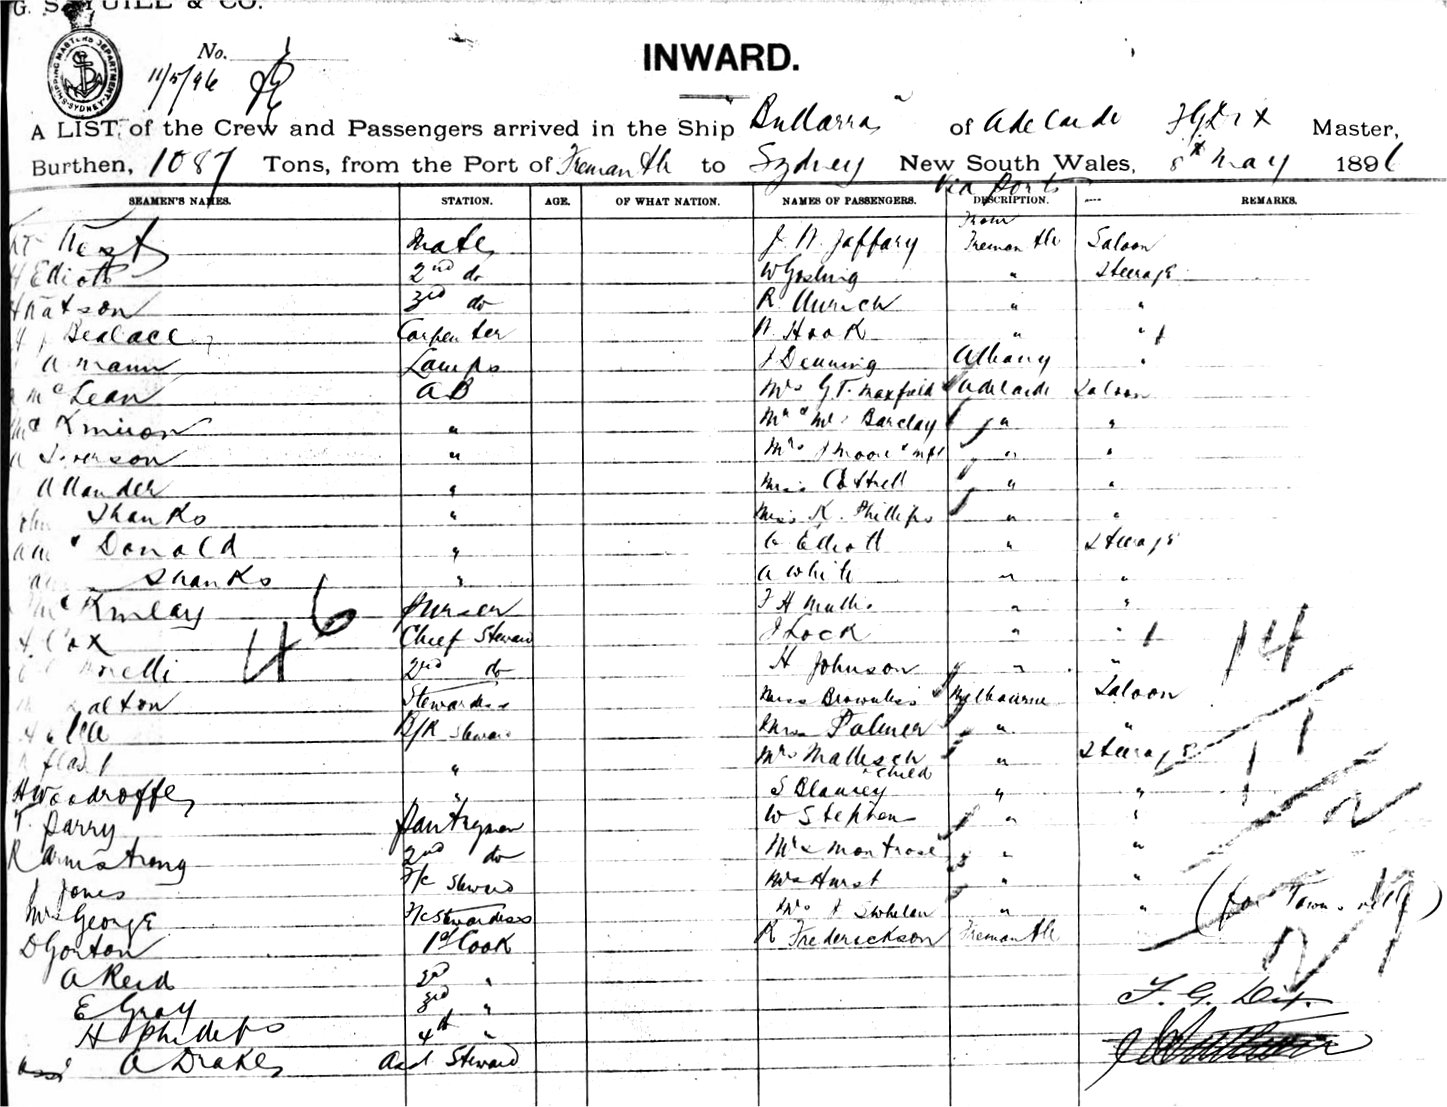 G. S. YUILL & CO.
SHIPPING MASTERS DEPARTMENT SYDNEY
No.
11/5/96
INWARD.
A LIST of the Crew and Passengers arrived in the Ship Bullarra of Adelaide F G Dix Master,
Burthen, 1087 Tons, from the Port of Fremantle to Sydney New South Wales, 8th May 1896
Via Ports
SEAMEN'S NAMES. STATION. AGE. OF WHAT NATION. NAMES OF PASSENGERS. DESCRIPTION. REMARKS.
From
West Mate J. W. Jaffary Fremantle Saloon
H Elliott 2nd do W Gosling " Steerage
H Watson 3rd do R. " "
Carpenter W. Hook " "
A mann Lamps J Denning Albany "
Mc Lean AB Mrs G T. Maxfield Adelaide Saloon
Mc " Mr & Mrs Barclay " "
" Mrs J Moore & " "
" Miss Cottrell " "
Shanks " Miss K. Phillips " "
Donald " Elliott " Steerage
Shanks " A White " "
Mc Kinlay Purser F H " "
Cox Chief Steward J Lock " "
2nd do H Johnson " "
Stewardess Miss Melbourne Saloon
B/R Steward Palmer " "
" Mrs " Steerage
& child
H Woodroffe " S Blamey " "
T. Parry Pantryman W Stephens " "
R Armstrong 2nd do Mrs Montrose " "
J Jones F/c Steward Mrs Hurst " "
Mrs George F/c Stewardess Mrs J S Whelan " " (for Townsville)
D Gorton 1st Cook R Frederickson Fremantle
A Reid 2nd "
E Gray 3rd " F. G. Dix.
H Phillips 4th "
A Drake Asst Steward
46
14
11
2
27